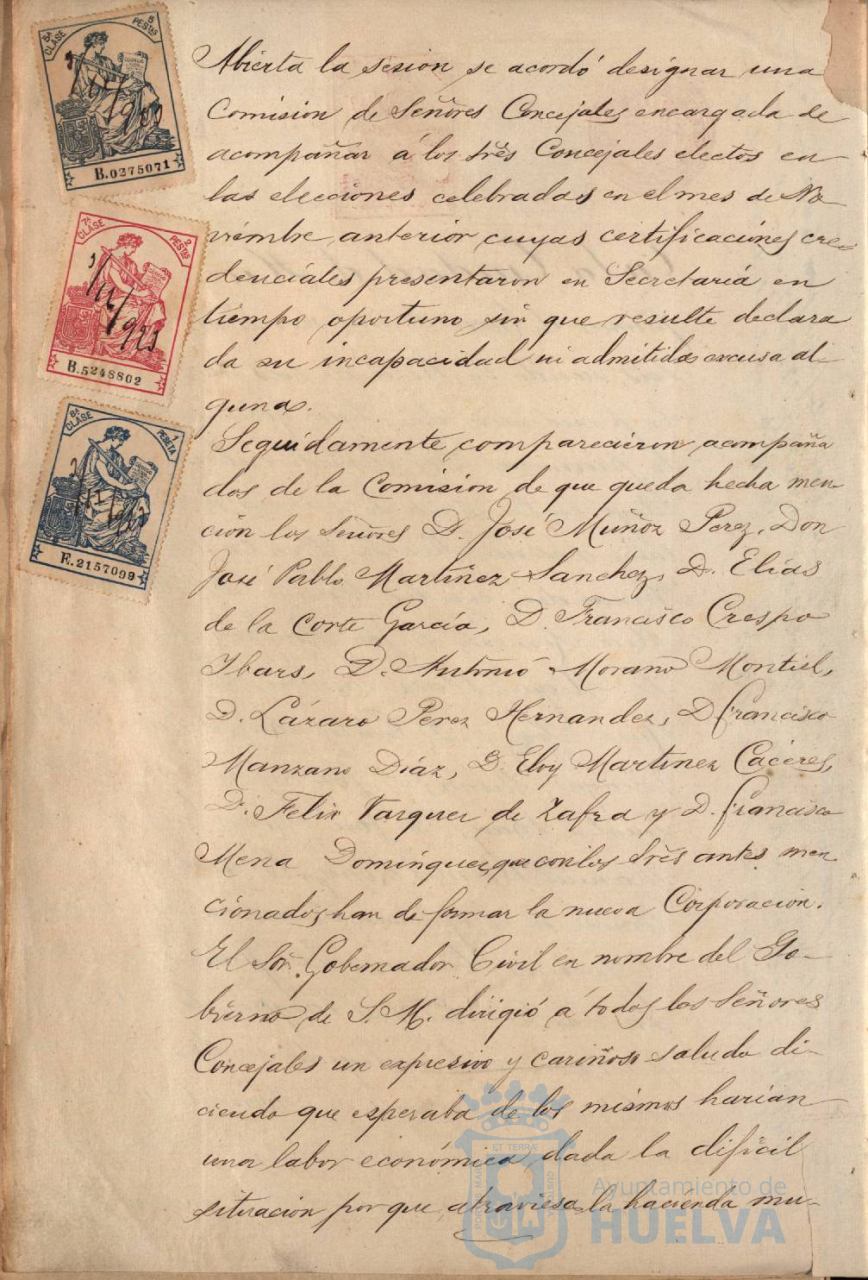 5ª CLASE 5 PESTAS
B.0275071
7ª CLASE 2 PESTAS
B.5248802
8ª CLASE 1 PESETA
E.2157099
Abierta la sesion se acordó designar una
Comision de Señores Concejales encargada de
acompañar á los trés Concejales electos en
las elecciones celebradas en el mes de No-
viembre anterior cuyas certificaciones cre-
denciales presentaron en Secretaría en
tiempo oportuno sin que resulte declara
da su incapacidad ni admitida excusa al
guna.
Seguidamente comparecieron acompaña
dos de la Comision de que queda hecha men
ción los Señores D. José Muñoz Perez, Don
José Pablo Martinez Sanchez, D. Elías
de la Corte García, D. Francisco Crespo
Ybars, D. Antonio Morano Montiel,
D. Lázaro Perez Hernandez, D. Francisco
Manzano Díaz, D. Eloy Martinez Cáceres,
D. Felix Vazquez de Zafra y D. Francisco
Mena Dominguez, que con los trés antes men
cionados han de formar la nueva Corporacion.
El Sor. Gobernador Civil en nombre del Go-
bierno de S. M. dirigió á todos los Señores
Concejales un expresivo y cariñoso saludo di-
ciendo que esperaba de los mismos harian
una labor económica, dada la dificil
situacion por que atraviesa la hacienda mu-
Ayuntamiento de
HUELVA